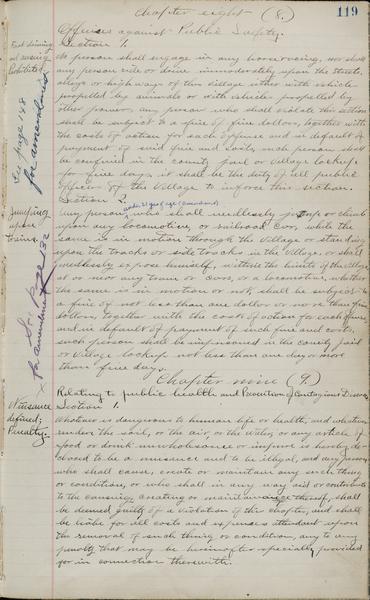 Chapter eight (8.)
119
Offenses against Public Safety.
Section 1.
Fast driving
and racing
prohibited
No person shall engage in any horse racing, nor shall
any person ride or drive immoderately upon the streets,
alleys or highways of this village either with vehicle
propelled by animals or with vehicle propelled by
other power, any person who shall violate this section
shall be subject to a fine of five dollars, together with
the costs of action for each offense and in default of
payment of said fine and costs, such person shall
be confined in the county jail or village lockup
for five days. it shall be the duty of all public
officers of the village to inforce this section.
See page 148
for amendment
Section 2.
under 21 yrs of age (amendment)
Jumping
upon
trains.
Any person who shall needlessly jump or climb
upon any locomotive, or railroad car, while the
same is in motion through the village or standing
upon the tracks or side tracks in the village, or shall
needlessly expose himself, within the limits of the village
at or near any train, or cars, or a locomotive, whether
the same is in motion or not, shall be subject to
a fine of not less than one dollar or more than five
dollars, together with the costs of action for each offense,
and in default of payment of such fine and costs,
such person shall be imprisoned in the county jail
or village lockup not less than one day or more
than five days.
See Page 132
for amendment
Chapter nine (9.)
Relating to public health and Prevention of Contagious Diseases
Section 1.
Nuisance
defined;
Penalty:
Whatever is dangerous to human life or health, and whatever
renders the soil, or the air, or the water, or any article of
food or drink unwholesome or impure is hereby de-
clared to be a nuisance and to be illegal, and any person,
who shall cause, create or maintain any such thing
or condition, or who shall in any way aid or contribute
to the causing, creating or maintainance thereof, shall
be deemed guilty of a violation of this chapter, and shall
be liable for all costs and expenses attendant upon
the removal of such thing or condition, any to any
penalty that may be hereinafter specially provided
for in connection therewith.